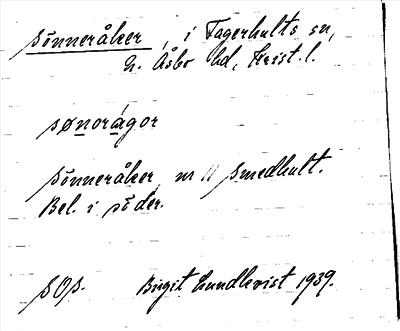 Sönneråker, i Fagerhults sn,
N. Åsbo hd, Krist. l.
sønorágor
Sönneråker, nr 11 Smedhult.
Bel. i söder.
SOs. Birgit Lundkvist 1939.